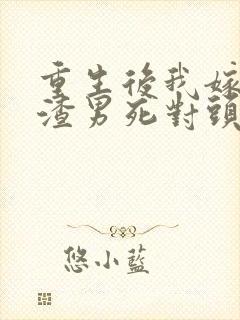 重生後我嫁
渣男死對頭
悠小藍